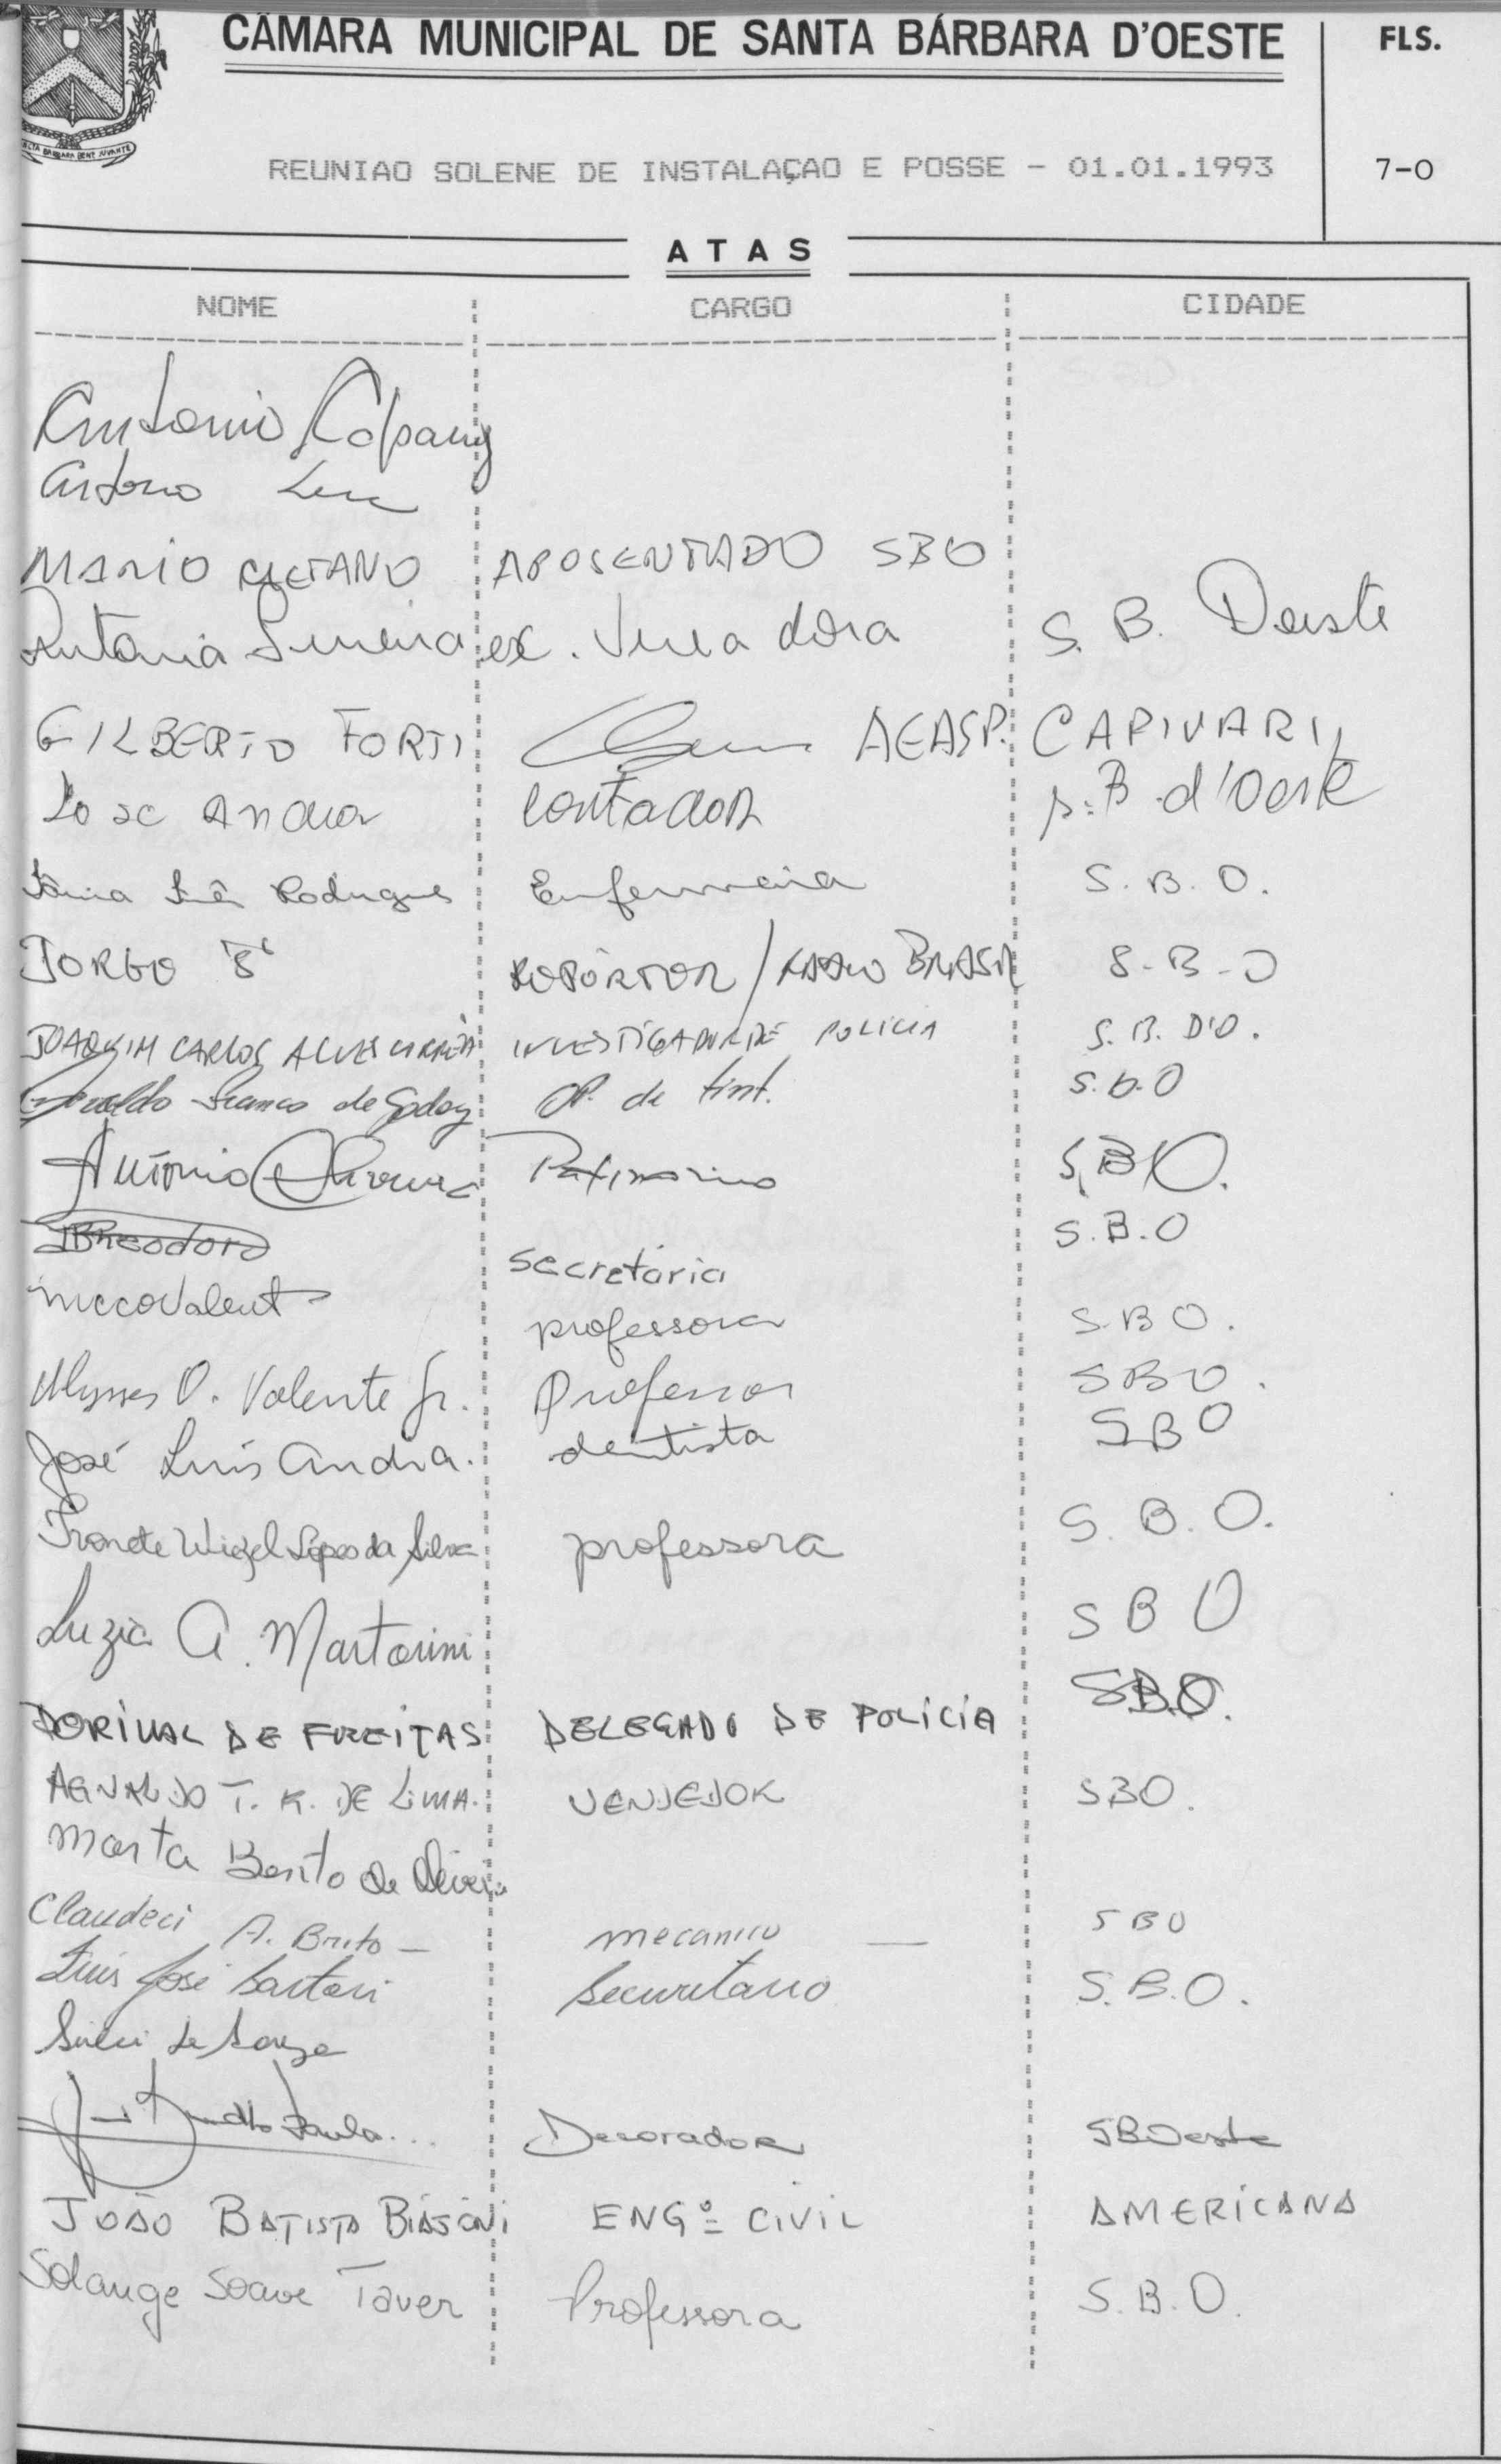 CÂMARA MUNICIPAL DE SANTA BÁRBARA D'OESTE FLS.
REUNIAO SOLENE DE INSTALAÇAO E POSSE - 01.01.1993 7-O
ATAS
NOME CARGO CIDADE
Antonio
Antonio
MARIO CAETANO APOSENTADO SBO
Antonia ex. Vereadora S. B. Doeste
GILBERTO FORTI AEASP. CAPIVARI
José Andia Contador S. B. d'Oeste
Rodrigues Enfermeira S. B. O.
JORGE REPÓRTER / RADIO BRASIL S-B-O
JOAQUIM CARLOS ALVES INVESTIGADOR DE POLICIA S. B. D'O.
Franco de Godoy OP. de tint. S.B.O
Antonio S.B.O.
S.B.O
secretária
professora S.B O.
Ulysses O. Valente Jr. Professor SBO.
José Luís Andia. dentista SBO
Ivonete Wiezel Lopes da Silva professora S. B. O.
Luzia A. Martorini S B O
DORIVAL DE FREITAS DELEGADO DE POLICIA S.B.O.
AGNALDO T. R. DE LIMA. VENDEDOR SBO.
Marta Benito de Oliveira
Claudeci A. Brito - mecanico — SBO
Luis José Sartori Securitario S.B.O.
Sueli de Souza
Paula... Decorador SBOeste
JOÃO BATISTA BIASONI ENGº CIVIL AMERICANA
Solange Soave Taver Professora S.B.O.